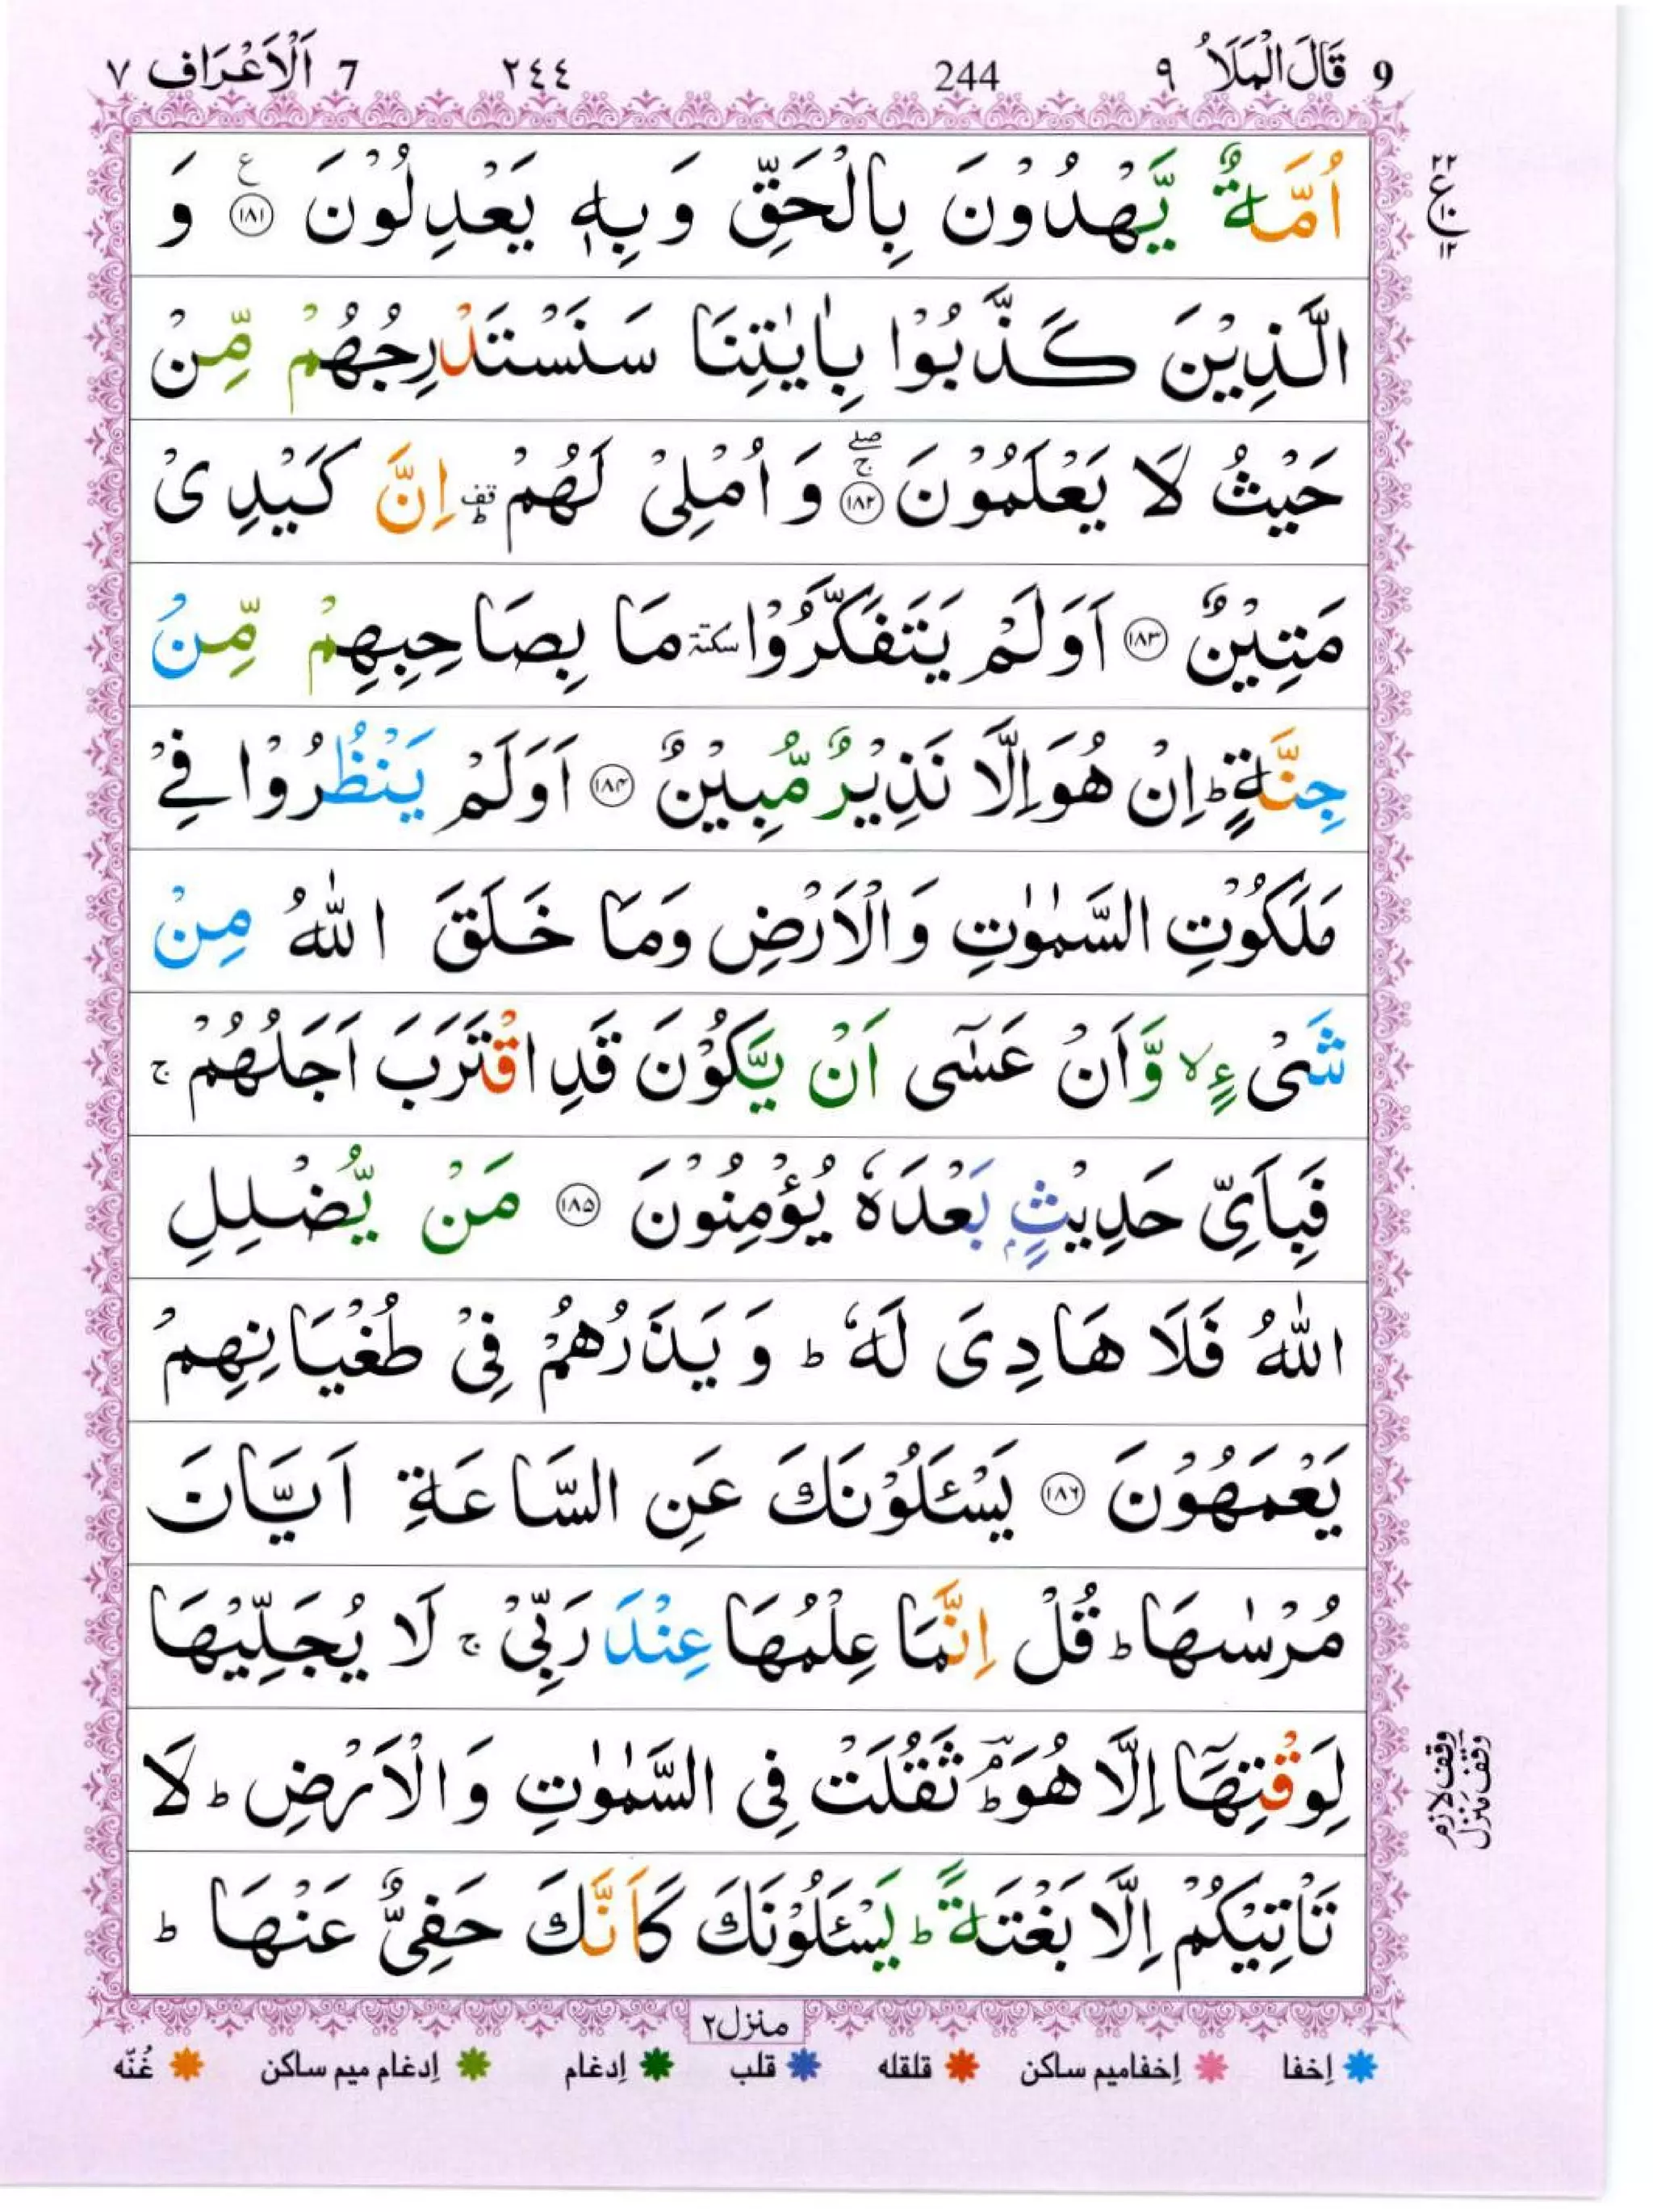 9 قَالَ الْمَلَاُ ٩ 244 ٢٤٤ 7 اَلْاَعْرَاف ٧
اُمَّةٌ يَّهْدُوْنَ بِالْحَقِّ وَبِهٖ يَعْدِلُوْنَ ﴿١٨١﴾ ع وَ
٢٢ ع ١٠ ١٢
الَّذِيْنَ كَذَّبُوْا بِاٰيٰتِنَا سَنَسْتَدْرِجُهُمْ مِّنْ
حَيْثُ لَا يَعْلَمُوْنَ ﴿١٨٢﴾ ۚۖ وَ اُمْلِیْ لَهُمْ ؕ قف اِنَّ كَيْدِیْ
مَتِيْنٌ ﴿١٨٣﴾ اَوَلَمْ يَتَفَكَّرُوْا سكتة مَا بِصَاحِبِهِمْ مِّنْ
جِنَّةٍ ؕ اِنْ هُوَ اِلَّا نَذِيْرٌ مُّبِيْنٌ ﴿١٨٤﴾ اَوَلَمْ يَنْظُرُوْا فِیْ
مَلَكُوْتِ السَّمٰوٰتِ وَالْاَرْضِ وَمَا خَلَقَ اللّٰهُ مِنْ
شَیْءٍ ۙ وَّاَنْ عَسٰۤی اَنْ يَّكُوْنَ قَدِ اقْتَرَبَ اَجَلُهُمْ ۚ
فَبِاَیِّ حَدِيْثٍۭ بَعْدَهٗ يُؤْمِنُوْنَ ﴿١٨٥﴾ مَنْ يُّضْلِلِ
اللّٰهُ فَلَا هَادِیَ لَهٗ ؕ وَ يَذَرُهُمْ فِیْ طُغْيَانِهِمْ
يَعْمَهُوْنَ ﴿١٨٦﴾ يَسْـَٔلُوْنَكَ عَنِ السَّاعَةِ اَيَّانَ
مُرْسٰىهَا ؕ قُلْ اِنَّمَا عِلْمُهَا عِنْدَ رَبِّیْ ۚ لَا يُجَلِّيْهَا
لِوَقْتِهَاۤ اِلَّا هُوَ ؕۘؔ ثَقُلَتْ فِی السَّمٰوٰتِ وَالْاَرْضِ ؕ لَا
وقف لازم
وقف منزل
تَاْتِيْكُمْ اِلَّا بَغْتَةً ؕ يَسْـَٔلُوْنَكَ كَاَنَّكَ حَفِیٌّ عَنْهَا ؕ
منزل ٢
اِخفا اِخفا میم ساکن قلقله قلب اِدغام اِدغام میم ساکن غُنّه